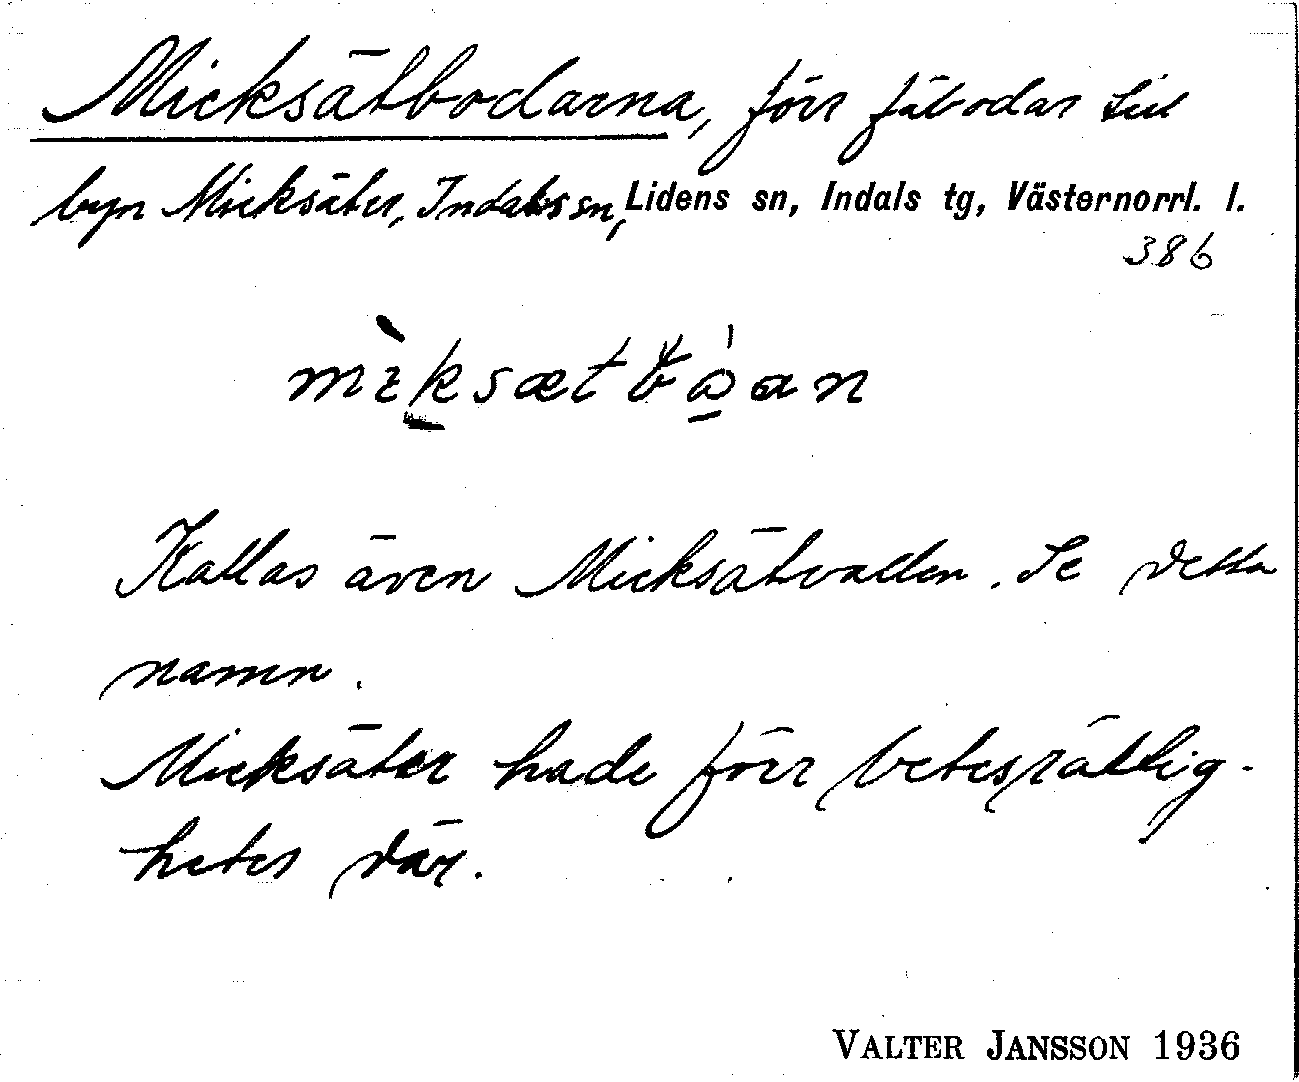 Micksätbodarna, förr fäbodar till
byn Micksäter, Indals sn, Lidens sn, Indals tg, Västernorrl. l.
386
mìksætbo̯̍an
Kallas även Micksätvallen. Se detta
namn.
Micksäter hade förr betesrättig-
heter där.
VALTER JANSSON 1936